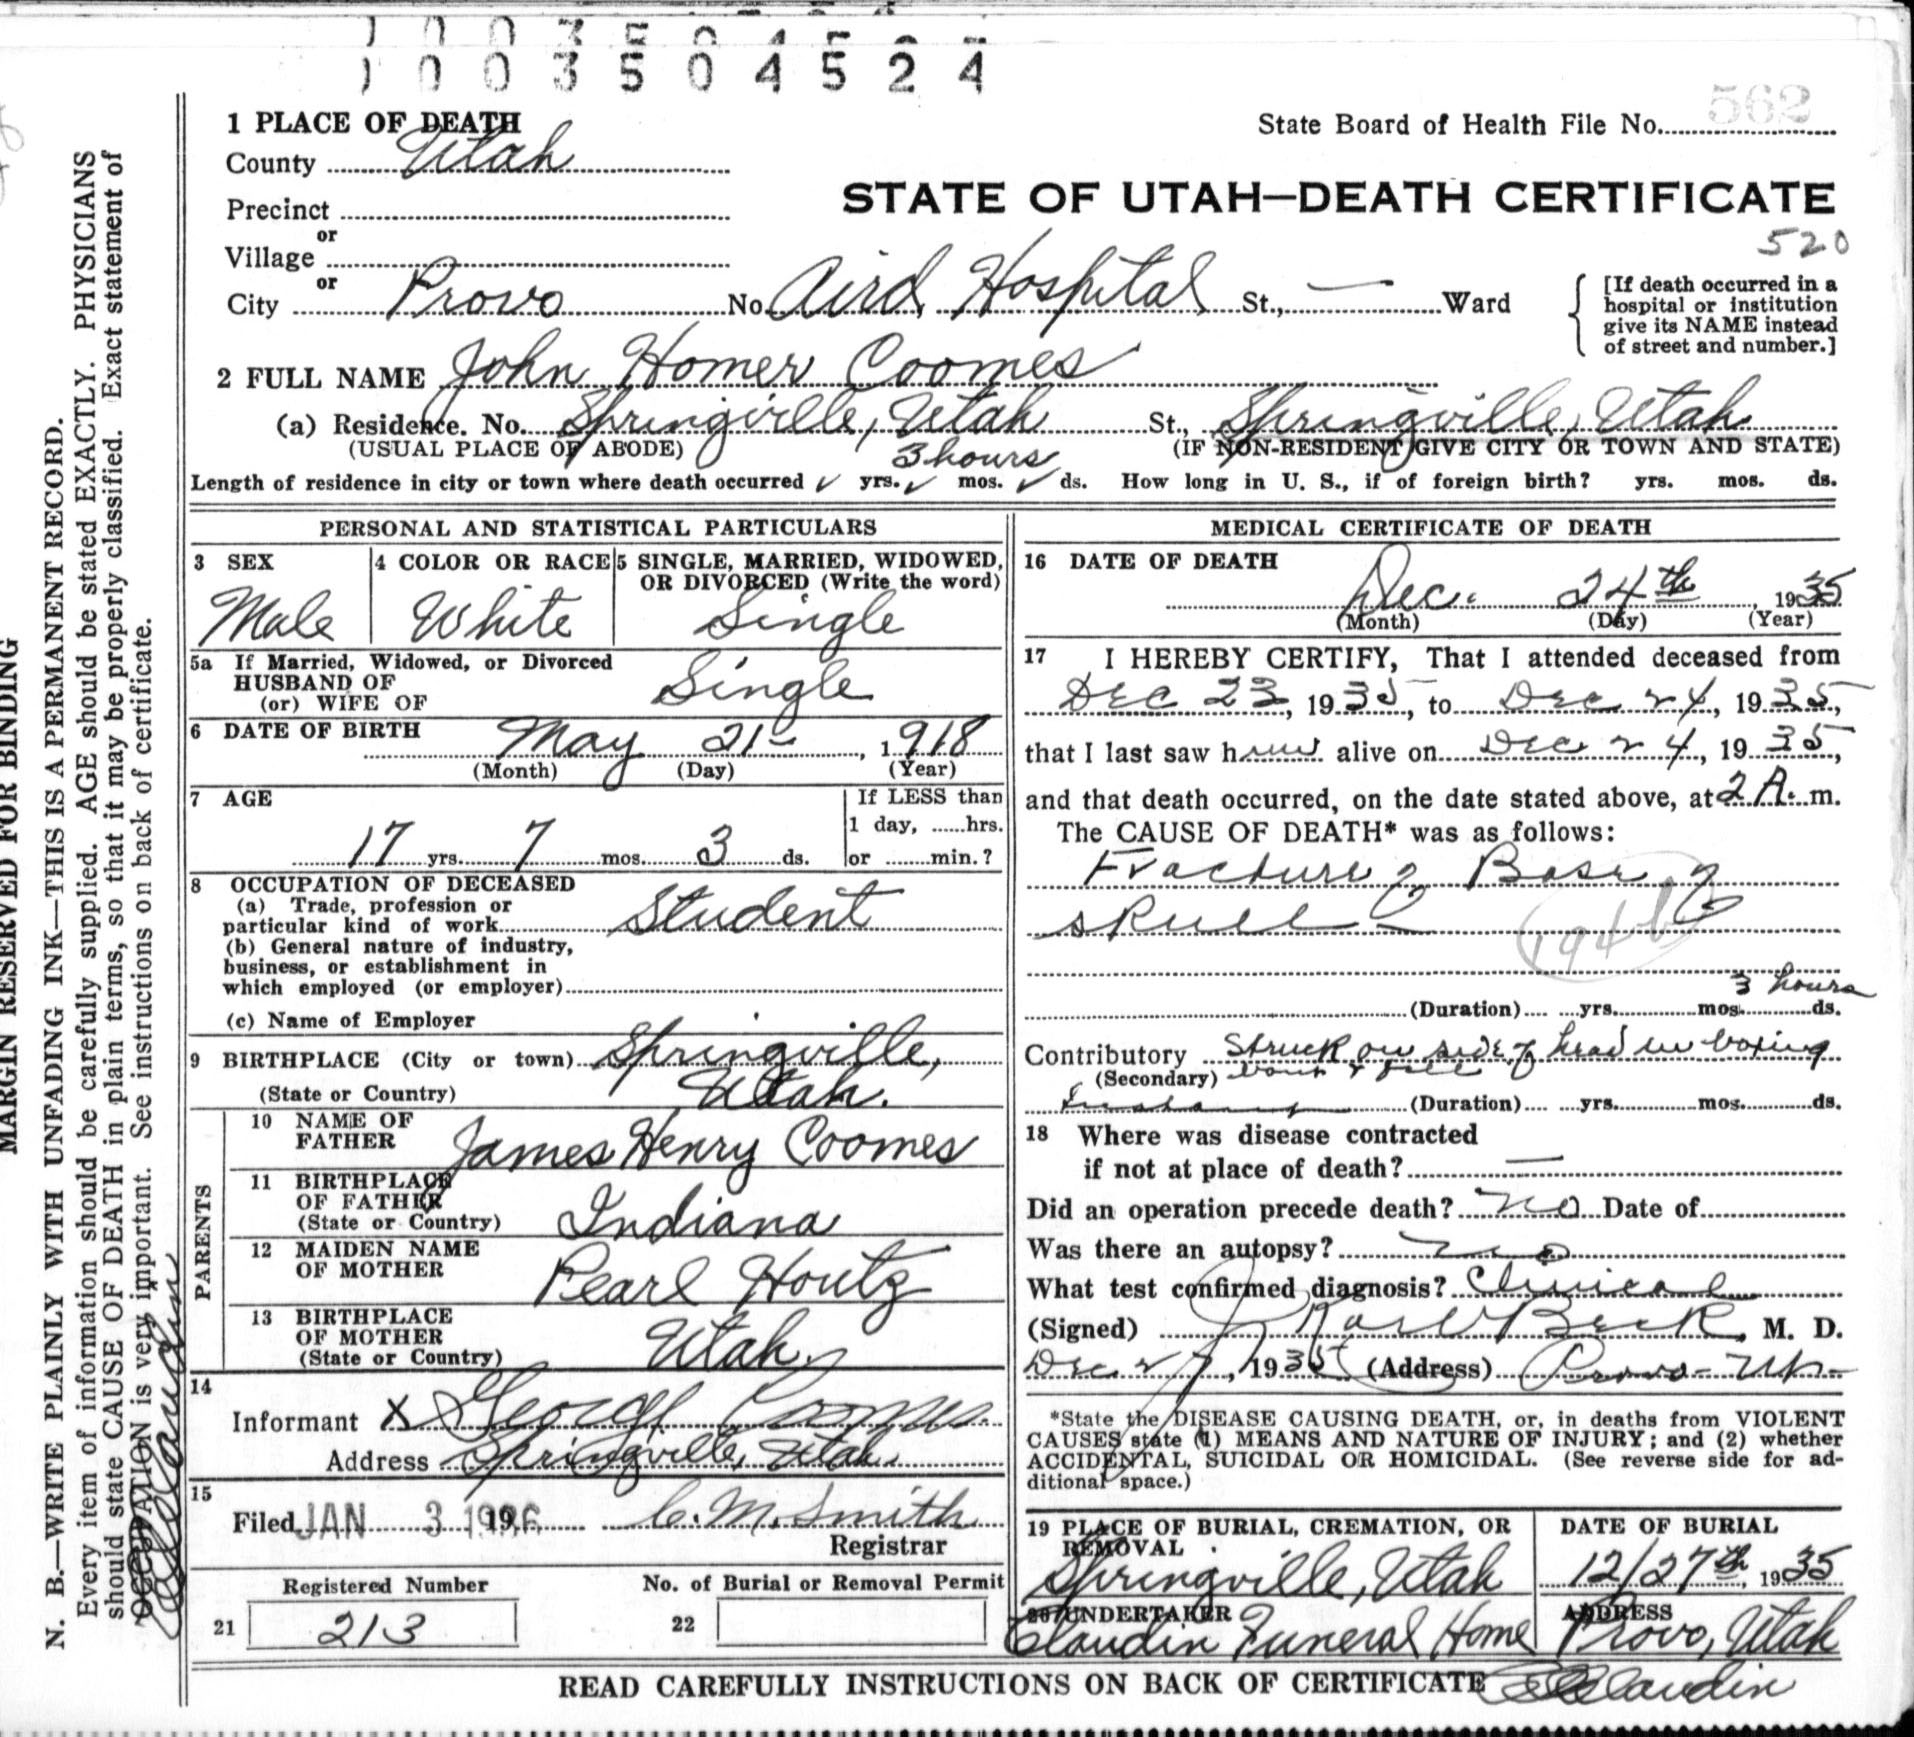 1003504524
562
1 PLACE OF DEATH
State Board of Health File No.
County Utah
STATE OF UTAH—DEATH CERTIFICATE
Precinct
520
or
Village
or
City Provo No. Aird Hospital St., — Ward
[If death occurred in a
hospital or institution
give its NAME instead
of street and number.]
2 FULL NAME John Homer Coomes
(a) Residence. No. Springville, Utah St., Springville, Utah
(USUAL PLACE OF ABODE) (IF NON-RESIDENT GIVE CITY OR TOWN AND STATE)
3 hours
Length of residence in city or town where death occurred ✓ yrs. ✓ mos. ✓ ds. How long in U. S., if of foreign birth? yrs. mos. ds.
PERSONAL AND STATISTICAL PARTICULARS
3 SEX
Male
4 COLOR OR RACE
White
5 SINGLE, MARRIED, WIDOWED,
OR DIVORCED (Write the word)
Single
5a If Married, Widowed, or Divorced
HUSBAND OF
(or) WIFE OF
Single
6 DATE OF BIRTH May 21- , 1918
(Month) (Day) (Year)
7 AGE
17 yrs. 7 mos. 3 ds.
If LESS than
1 day, ......hrs.
or ........min.?
8 OCCUPATION OF DECEASED
(a) Trade, profession or
particular kind of work Student
(b) General nature of industry,
business, or establishment in
which employed (or employer)
(c) Name of Employer
9 BIRTHPLACE (City or town) Springville,
(State or Country) Utah.
PARENTS
10 NAME OF
FATHER James Henry Coomes
11 BIRTHPLACE
OF FATHER
(State or Country) Indiana
12 MAIDEN NAME
OF MOTHER Pearl Houtz
13 BIRTHPLACE
OF MOTHER
(State or Country) Utah
14
Informant X George Coomes
Address Springville, Utah.
15
Filed JAN 3 1936 19 C. M. Smith
Registrar
Registered Number No. of Burial or Removal Permit
21 213 22
MEDICAL CERTIFICATE OF DEATH
16 DATE OF DEATH
Dec. 24th , 1935
(Month) (Day) (Year)
17 I HEREBY CERTIFY, That I attended deceased from
Dec 23, 1935, to Dec 24, 1935,
that I last saw him alive on Dec 24, 1935,
and that death occurred, on the date stated above, at 2 A. m.
The CAUSE OF DEATH* was as follows:
Fracture of Base of
skull -
194b
3 hours
(Duration) yrs. mos. ds.
Contributory Struck on side of head in boxing
(Secondary) bout & fell
(Duration) yrs. mos. ds.
18 Where was disease contracted
if not at place of death? —
Did an operation precede death? no Date of
Was there an autopsy? no
What test confirmed diagnosis? Clinical
(Signed) J Karl Beck, M. D.
Dec 27, 1935 (Address) Provo - Ut-
*State the DISEASE CAUSING DEATH, or, in deaths from VIOLENT
CAUSES state (1) MEANS AND NATURE OF INJURY; and (2) whether
ACCIDENTAL, SUICIDAL OR HOMICIDAL. (See reverse side for ad-
ditional space.)
19 PLACE OF BURIAL, CREMATION, OR
REMOVAL
Springville, Utah
DATE OF BURIAL
12/27th, 1935
20 UNDERTAKER
Claudin Funeral Home
ADDRESS
Provo, Utah
READ CAREFULLY INSTRUCTIONS ON BACK OF CERTIFICATE
Claudin
MARGIN RESERVED FOR BINDING
N. B.—WRITE PLAINLY WITH UNFADING INK—THIS IS A PERMANENT RECORD.
Every item of information should be carefully supplied. AGE should be stated EXACTLY. PHYSICIANS
should state CAUSE OF DEATH in plain terms, so that it may be properly classified. Exact statement of
OCCUPATION is very important. See instructions on back of certificate.
Claudin